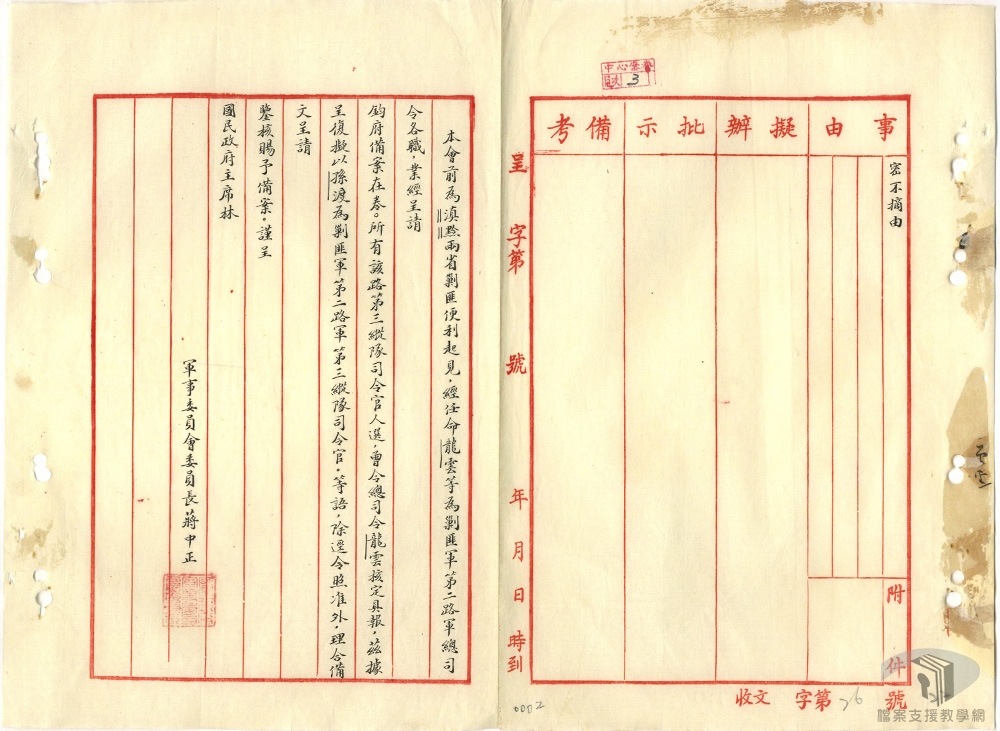 中心檔案
目次 3
事由
擬辦
批示
備考
密不摘由
附件
呈 字第 號 年 月 日 時到
收文 字第26號
本會前為滇黔兩省剿匪便利起見，經任命龍雲等為剿匪軍第二路軍總司
令各職，業經呈請
鈞府備案在卷。所有該路第三縱隊司令官人選，曾令總司令龍雲核定具報，茲據
呈復擬以孫渡為剿匪軍第二路軍第三縱隊司令官，等語，除逕令照准外，理合備
文呈請
鑒核賜予備案，謹呈
國民政府主席林
軍事委員會委員長蔣中正
0002
檔案支援教學網